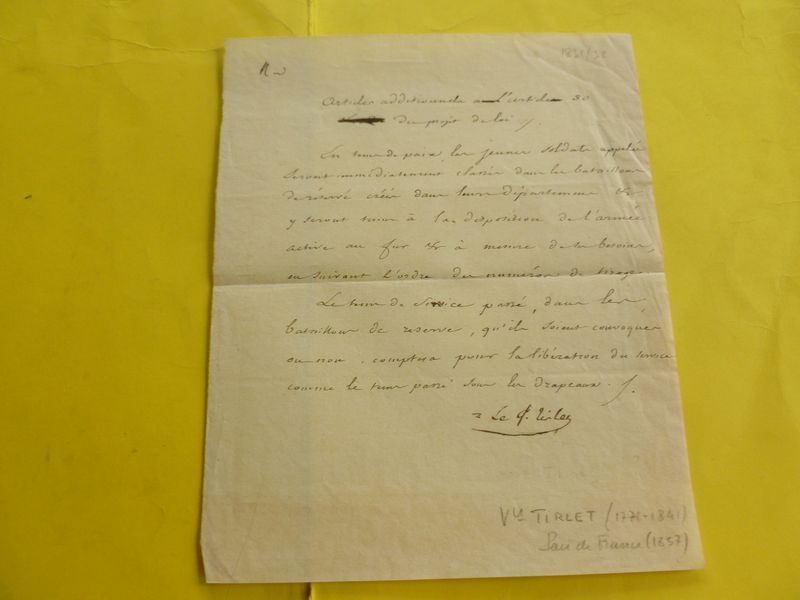 1831/32
Articles additionnels a l'article 30
du projet de loi
En tems de paix, les jeunes soldats appelés
seront immédiatement classés dans les bataillons
de réserve créés dans leurs départemens &
y seront tenus à la disposition de l'armée
active au fur & à mesure de ses besoins,
en suivant l'ordre des numéros de tirage
Le tems de service passé, dans les
bataillons de reserve, qu'ils soient convoqués
ou non, comptera pour la libération du service
comme le tems passé sous les drapeaux.
= Le Tirlet
Vte TIRLET (1771-1841)
Pair de France (1837)